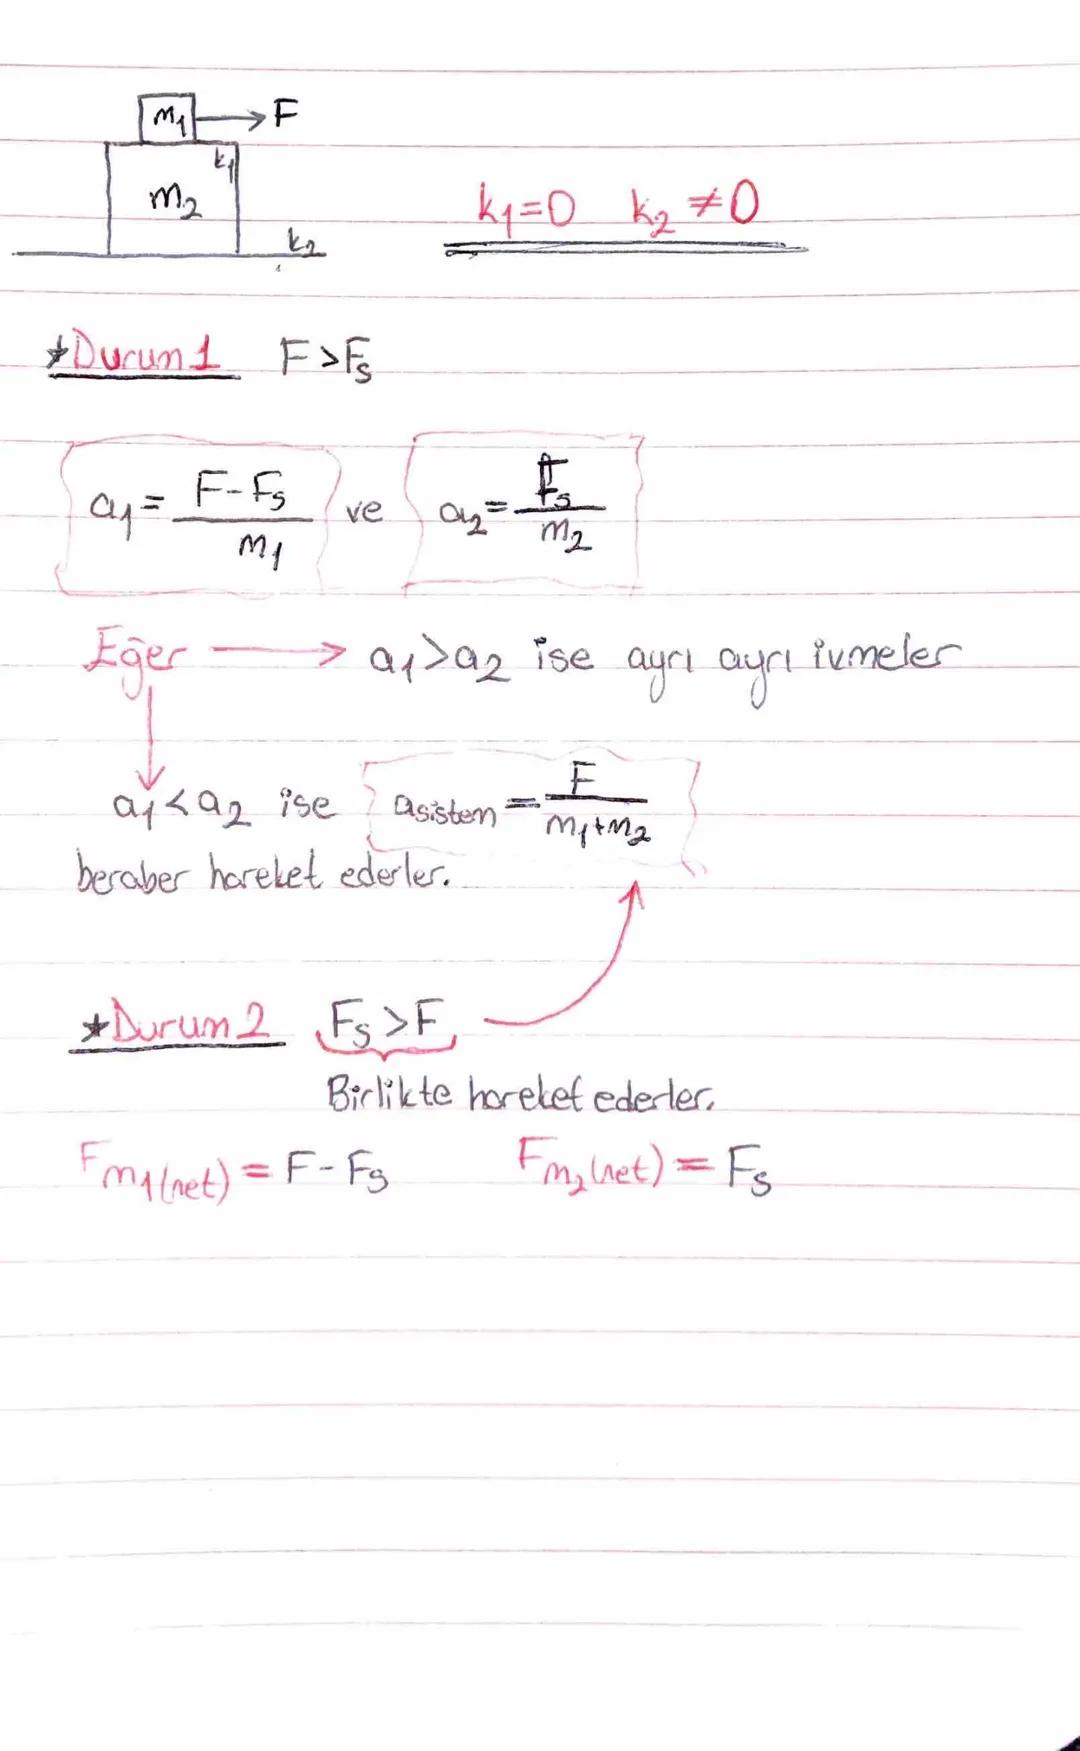 m₁ → F
k₁
m₂
k₂
k₁=0 k₂ ≠0
*Durum 1 F>Fs
a₁= F-Fs / m₁ ve a₂= Fs / m₂
Eğer → a₁>a₂ ise ayrı ayrı ivmeler
a₁<a₂ ise asistem = F / m₁+m₂
beraber hareket ederler.
*Durum 2 Fs>F
Birlikte hareket ederler.
Fm₁(net) = F-Fs Fm₂(net) = Fs